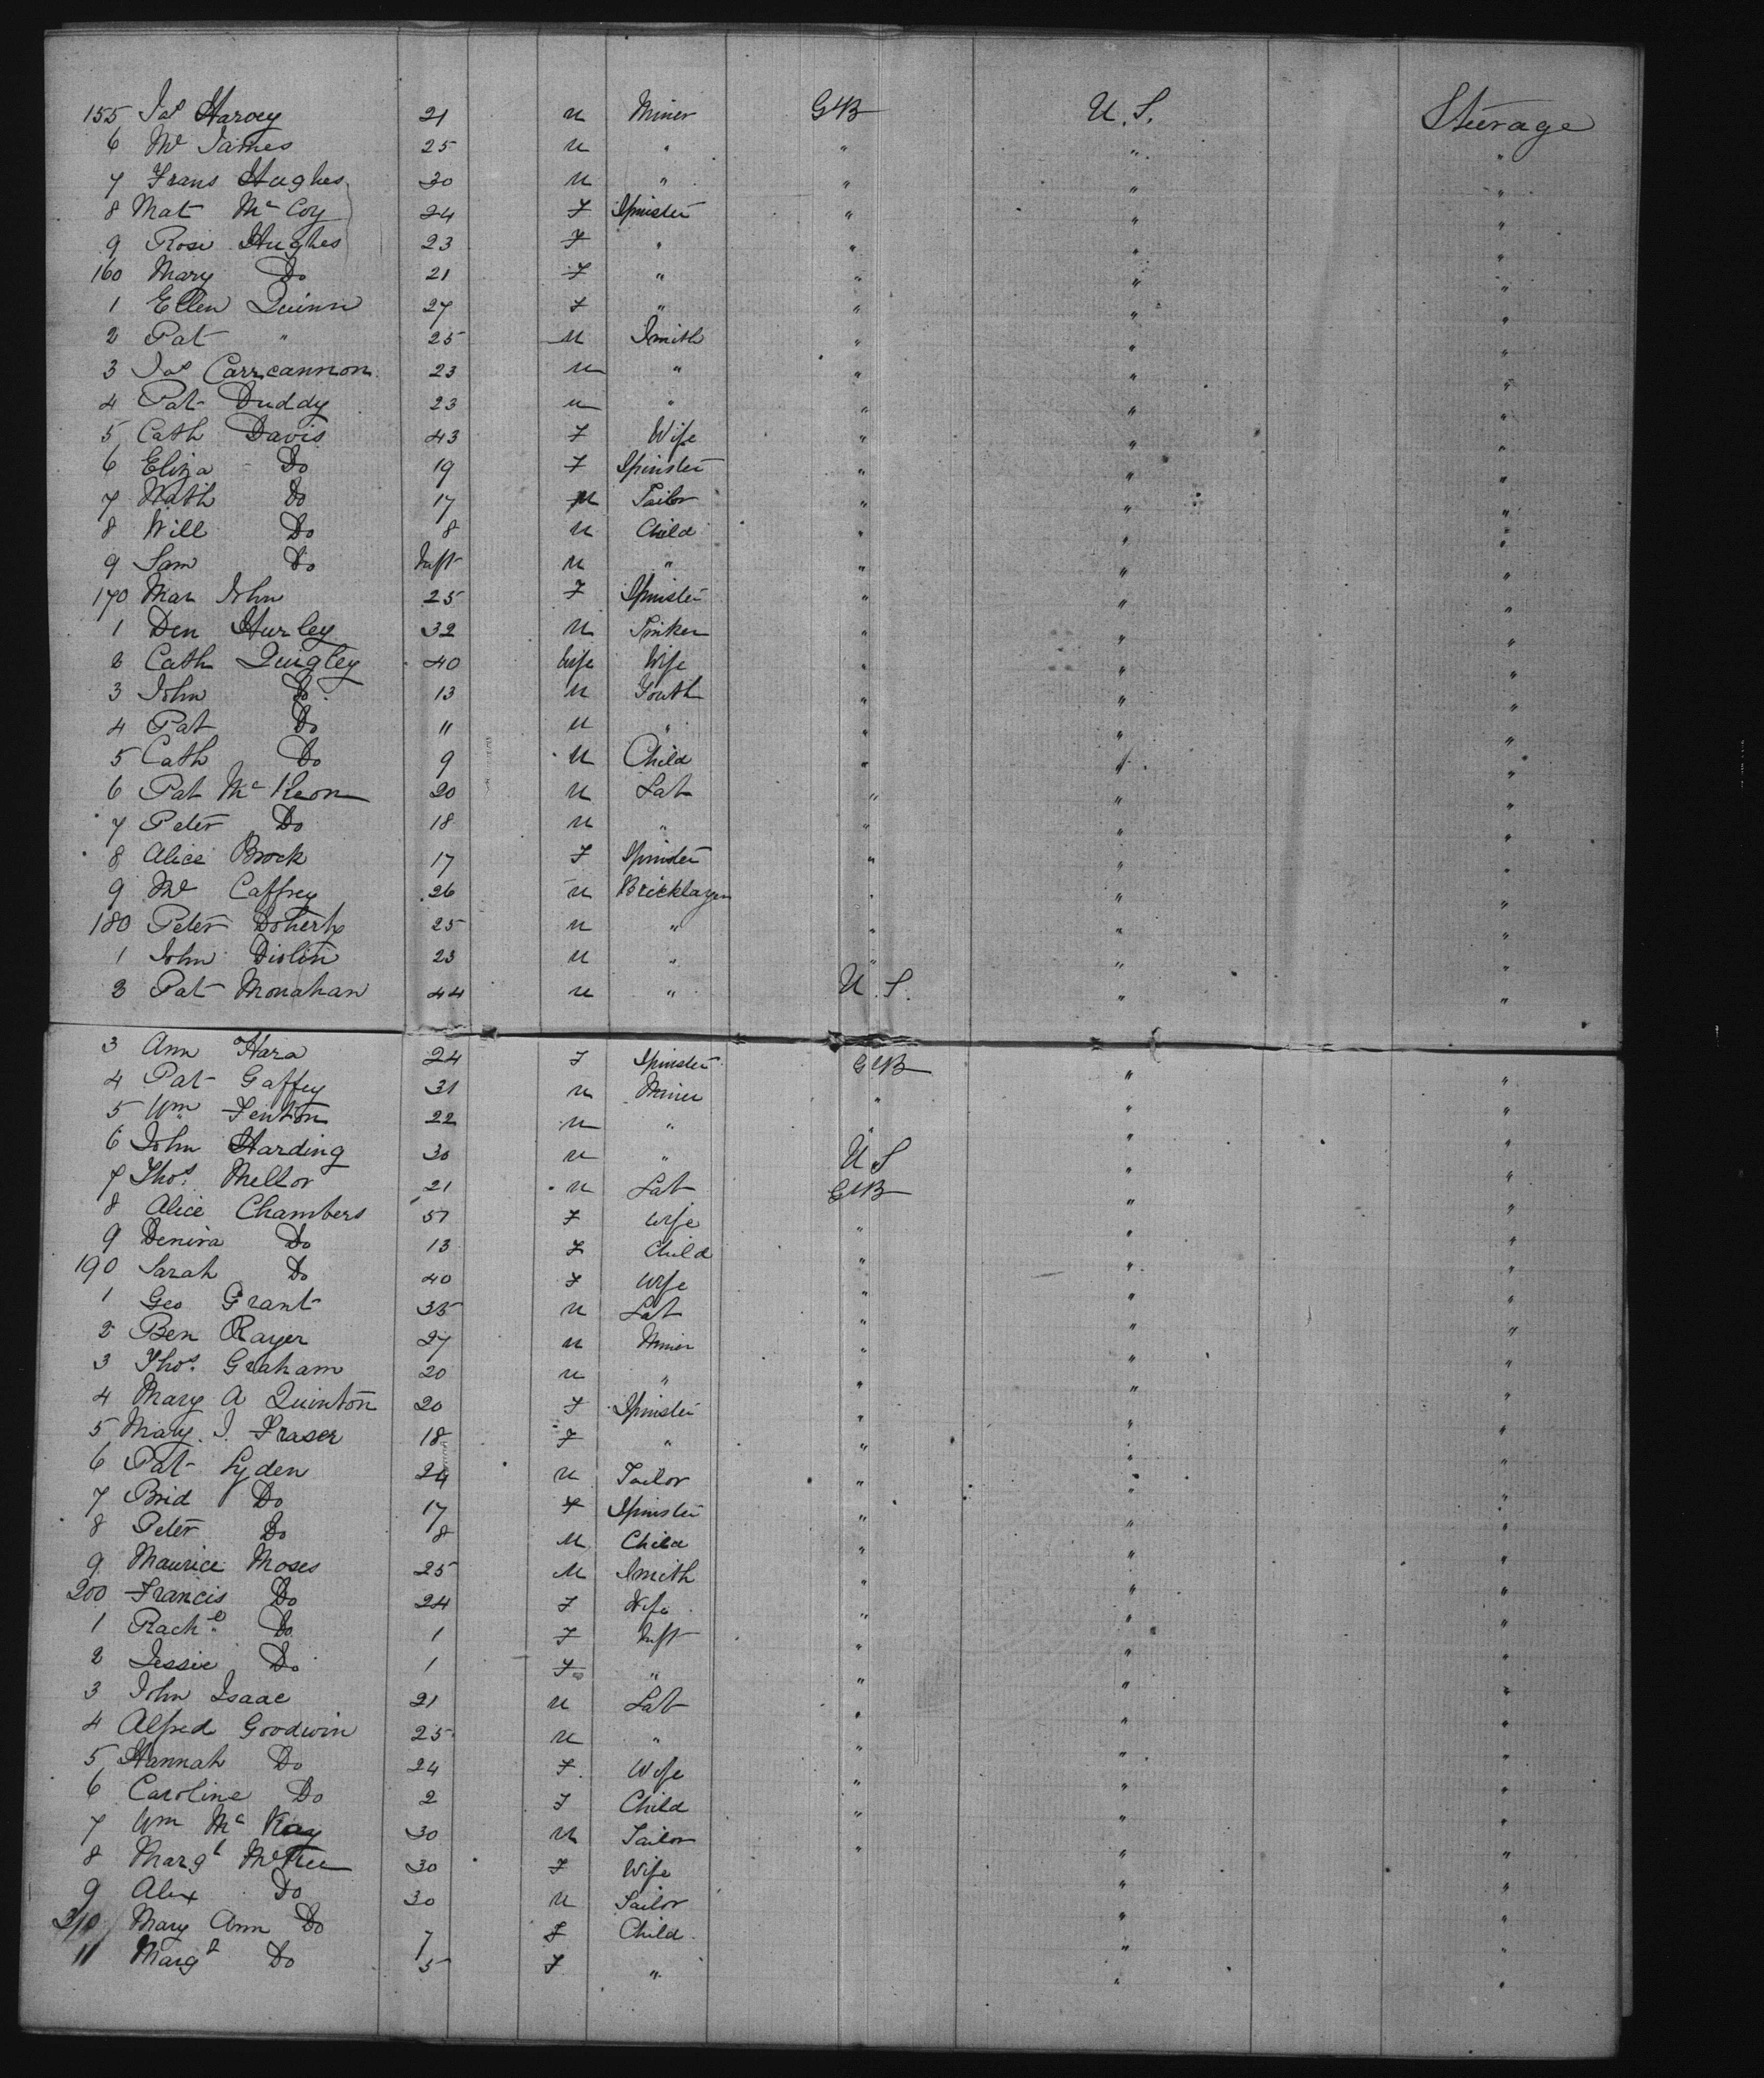 155 Jas Harvey 21 M Miner GB U.S. Steerage
6 Mc James 25 M " " " "
7 Frans Hughes 30 M " " " "
8 Mat McCoy 24 F Spinster " " "
9 Rose Hughes 23 F " " " "
160 Mary Do 21 F " " " "
1 Ellen Quinn 27 F " " " "
2 Pat " 25 M Smith " " "
3 Jas Carrcannon 23 M " " " "
4 Pat Duddy 23 M " " " "
5 Cath Davis 43 F Wife " " "
6 Eliza Do 19 F Spinster " " "
7 Nath Do 17 M Tailor " " "
8 Will Do 8 M Child " " "
9 Sam Do Inft M " " " "
170 Mar John 25 F Spinster " " "
1 Den Hurley 32 M Tinker " " "
2 Cath Quigley 40 Wife Wife " " "
3 John Do 13 M Youth " " "
4 Pat Do 11 M " " " "
5 Cath Do 9 M Child " " "
6 Pat McKeon 20 M Lab " " "
7 Peter Do 18 M " " " "
8 Alice Brock 17 F Spinster " " "
9 Mc Caffrey 26 M Bricklayer " " "
180 Peter Doherty 25 M " " " "
1 John Divlin 23 M " " " "
2 Pat Monahan 44 M " U.S. " "
3 Ann Hara 24 F Spinster GB " "
4 Pat Gaffey 31 M Miner " " "
5 Wm Fenton 22 M " " " "
6 John Harding 30 M " US " "
7 Thos. Mellor 21 M Lab GB " "
8 Alice Chambers 51 F Wife " " "
9 Denira Do 13 F Child " " "
190 Sarah Do 40 F Wife " " "
1 Geo Grant 35 M Lab " " "
2 Ben Rayer 27 M Miner " " "
3 Thos. Graham 20 M " " " "
4 Mary A Quinton 20 F Spinster " " "
5 Mary J. Fraser 18 F " " " "
6 Pat Lyden 24 M Tailor " " "
7 Brid Do 17 F Spinster " " "
8 Peter Do 8 M Child " " "
9 Maurice Moses 25 M Smith " " "
200 Francis Do 24 F Wife " " "
1 Rachel Do 1 F Inft " " "
2 Jessie Do 1 F " " " "
3 John Isaac 21 M Lab " " "
4 Alfred Goodwin 25 M " " " "
5 Hannah Do 24 F Wife " " "
6 Caroline Do 2 F Child " " "
7 Wm McKay 30 M Tailor " " "
8 Margt McKee 30 F Wife " "
9 Alex Do 30 M Sailor " "
210 Mary Ann Do 7 F Child " "
11 Margt Do 5 F " " "